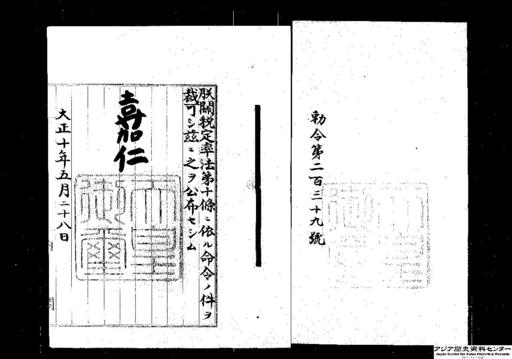 勅令第二百三十九號
朕關税定率法第十條ニ依ル命令ノ件ヲ
裁可シ茲ニ之ヲ公布セシム
嘉仁
天皇
御璽
大正十年五月二十八日
アジア歴史資料センター
Japan Center for Asian Historical Records